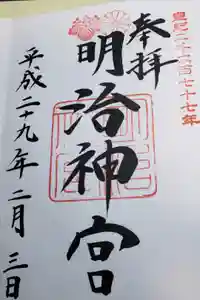 皇紀二千六百七十七年
奉拝
明治神宮
平成二十九年二月三日